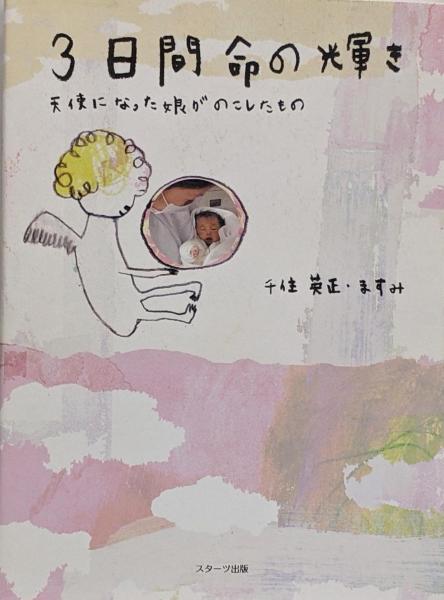 3日間 命の輝き
天使になった娘がのこしたもの
千住 英正・ますみ
スターツ出版